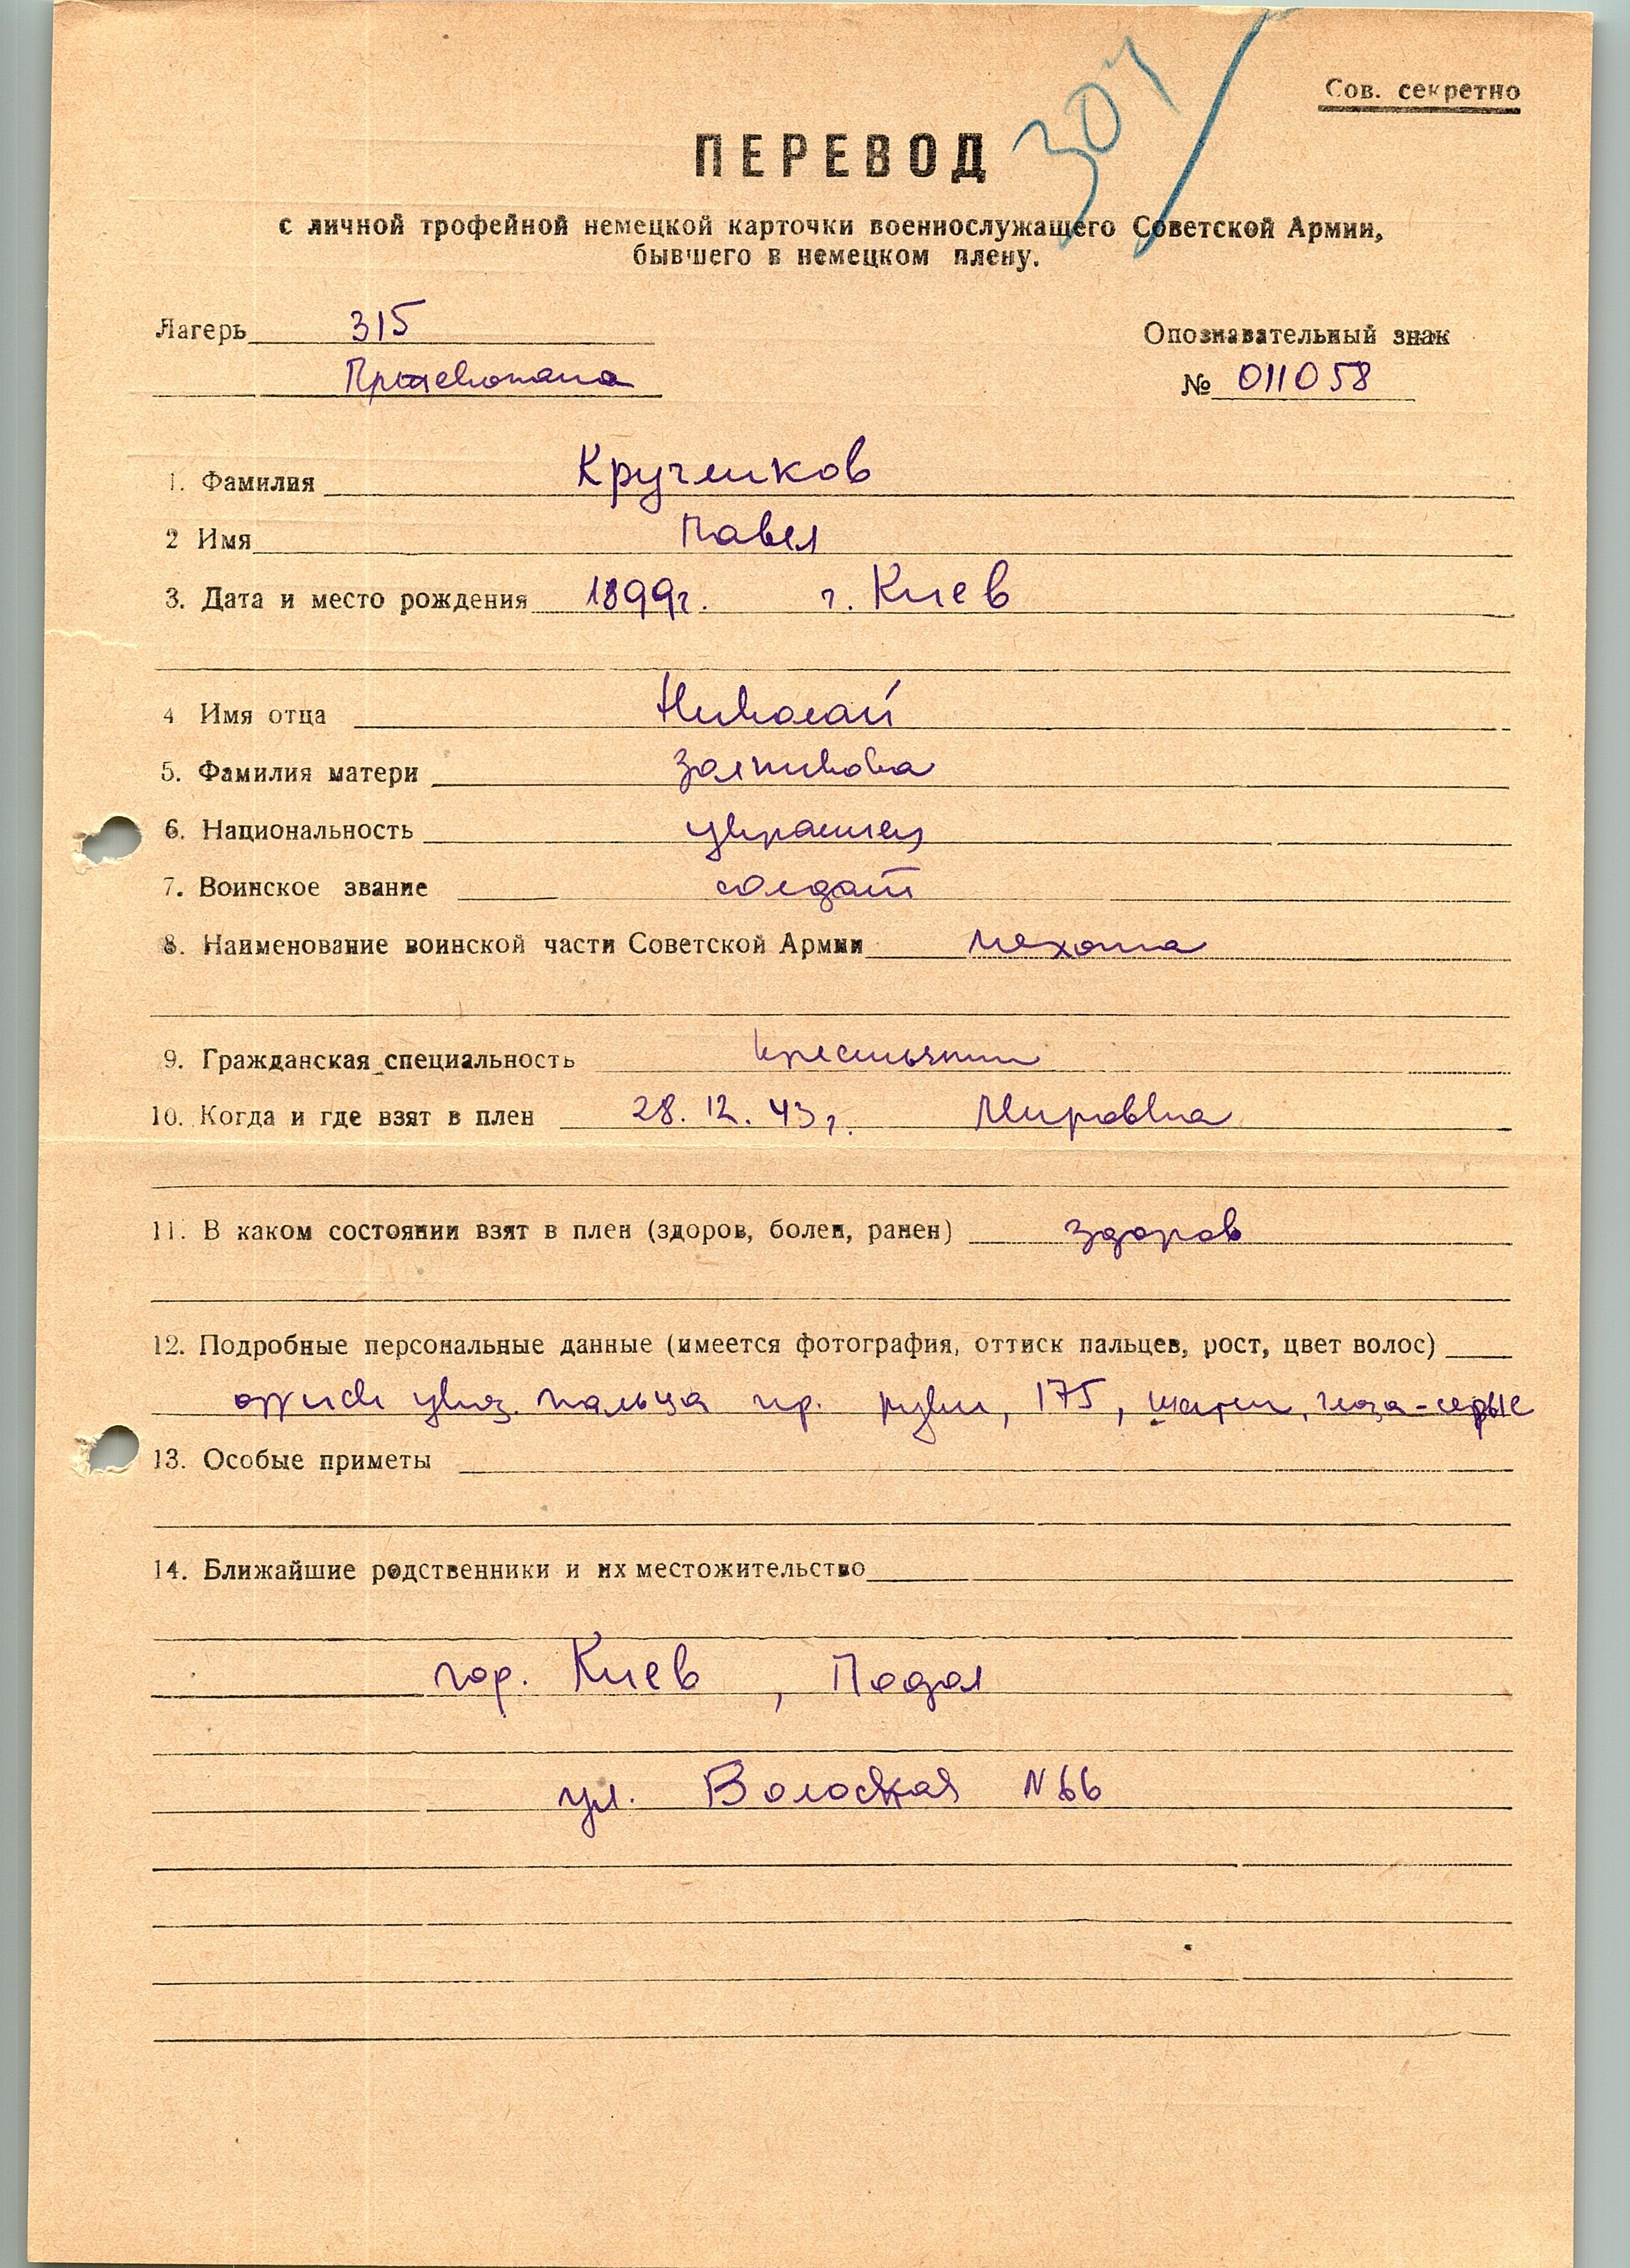 307
Сов. секретно
ПЕРЕВОД
с личной трофейной немецкой карточки военнослужащего Советской Армии,
бывшего в немецком плену.
Лагерь 315
Опознавательный знак
№ 011058
1. Фамилия Кручеиков
2 Имя Павел
3. Дата и место рождения 1899г. г. Киев
4 Имя отца Николай
5. Фамилия матери
6. Национальность украинец
7. Воинское звание солдат
8. Наименование воинской части Советской Армии пехота
9. Гражданская специальность крестьянин
10. Когда и где взят в плен 28. 12. 43г. Мировка
11. В каком состоянии взят в плен (здоров, болен, ранен) здоров
12. Подробные персональные данные (имеется фотография, оттиск пальцев, рост, цвет волос)
оттиск указ. пальца пр. руки, 175, шатен, глаза-серые
13. Особые приметы
14. Ближайшие родственники и их местожительство
гор. Киев, Подол
ул. Волоская N 66